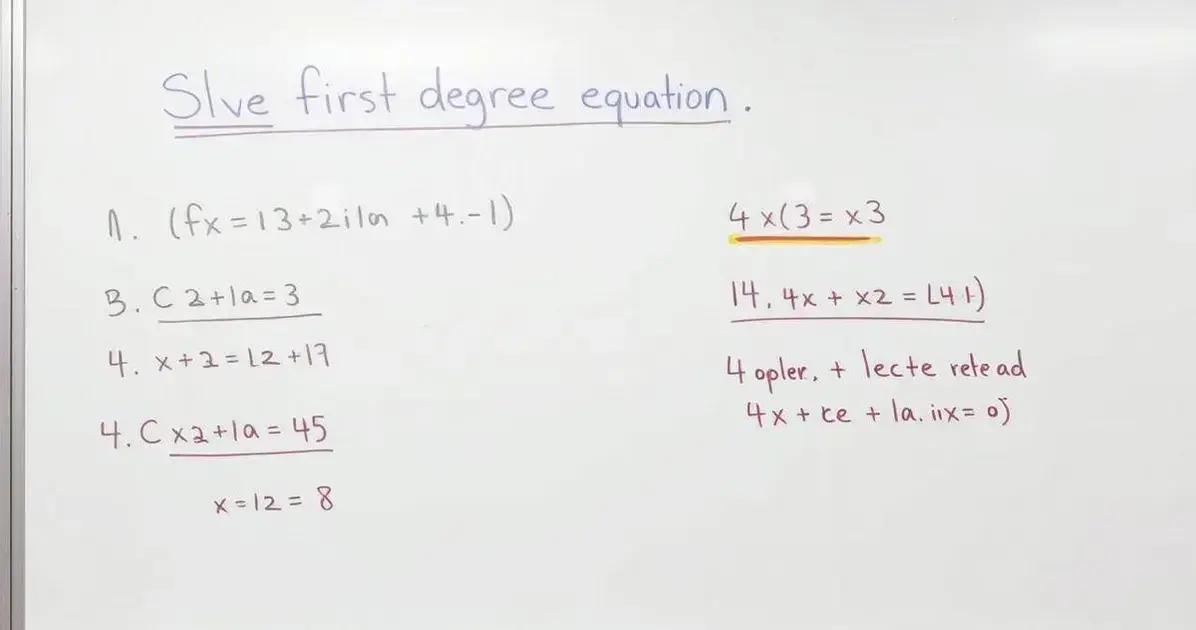 Slve first degree equation.
1. (fx = 13+2iln +4.-1)
3. C 2+1a=3
4. x+2=12+17
4. C x2+1a=45
x=12=8
4 x(3 = x3
14. 4x + x2 = L4 1)
4 opler. + lecte rete ad
4x + ce + la. iix= 0)